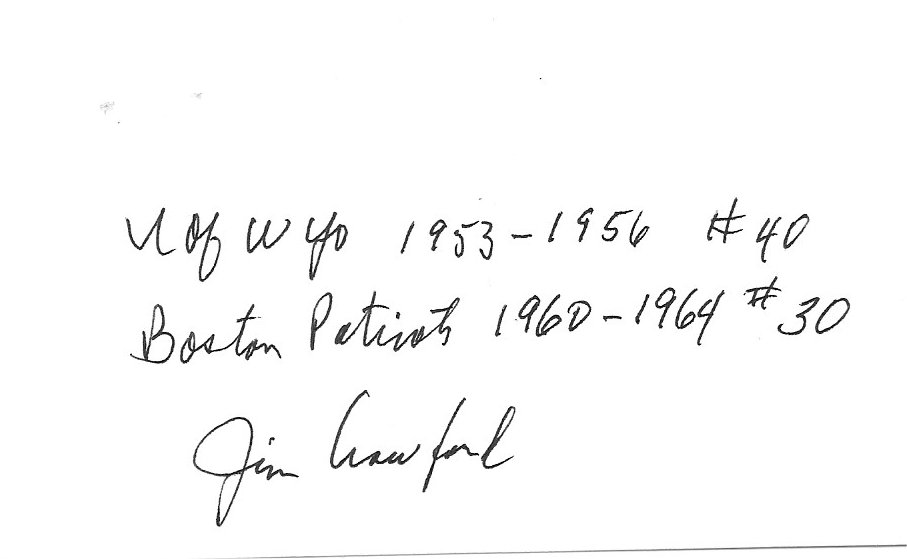 U of Wyo 1953-1956 #40
Boston Patriots 1960-1964 #30
Jim Crawford